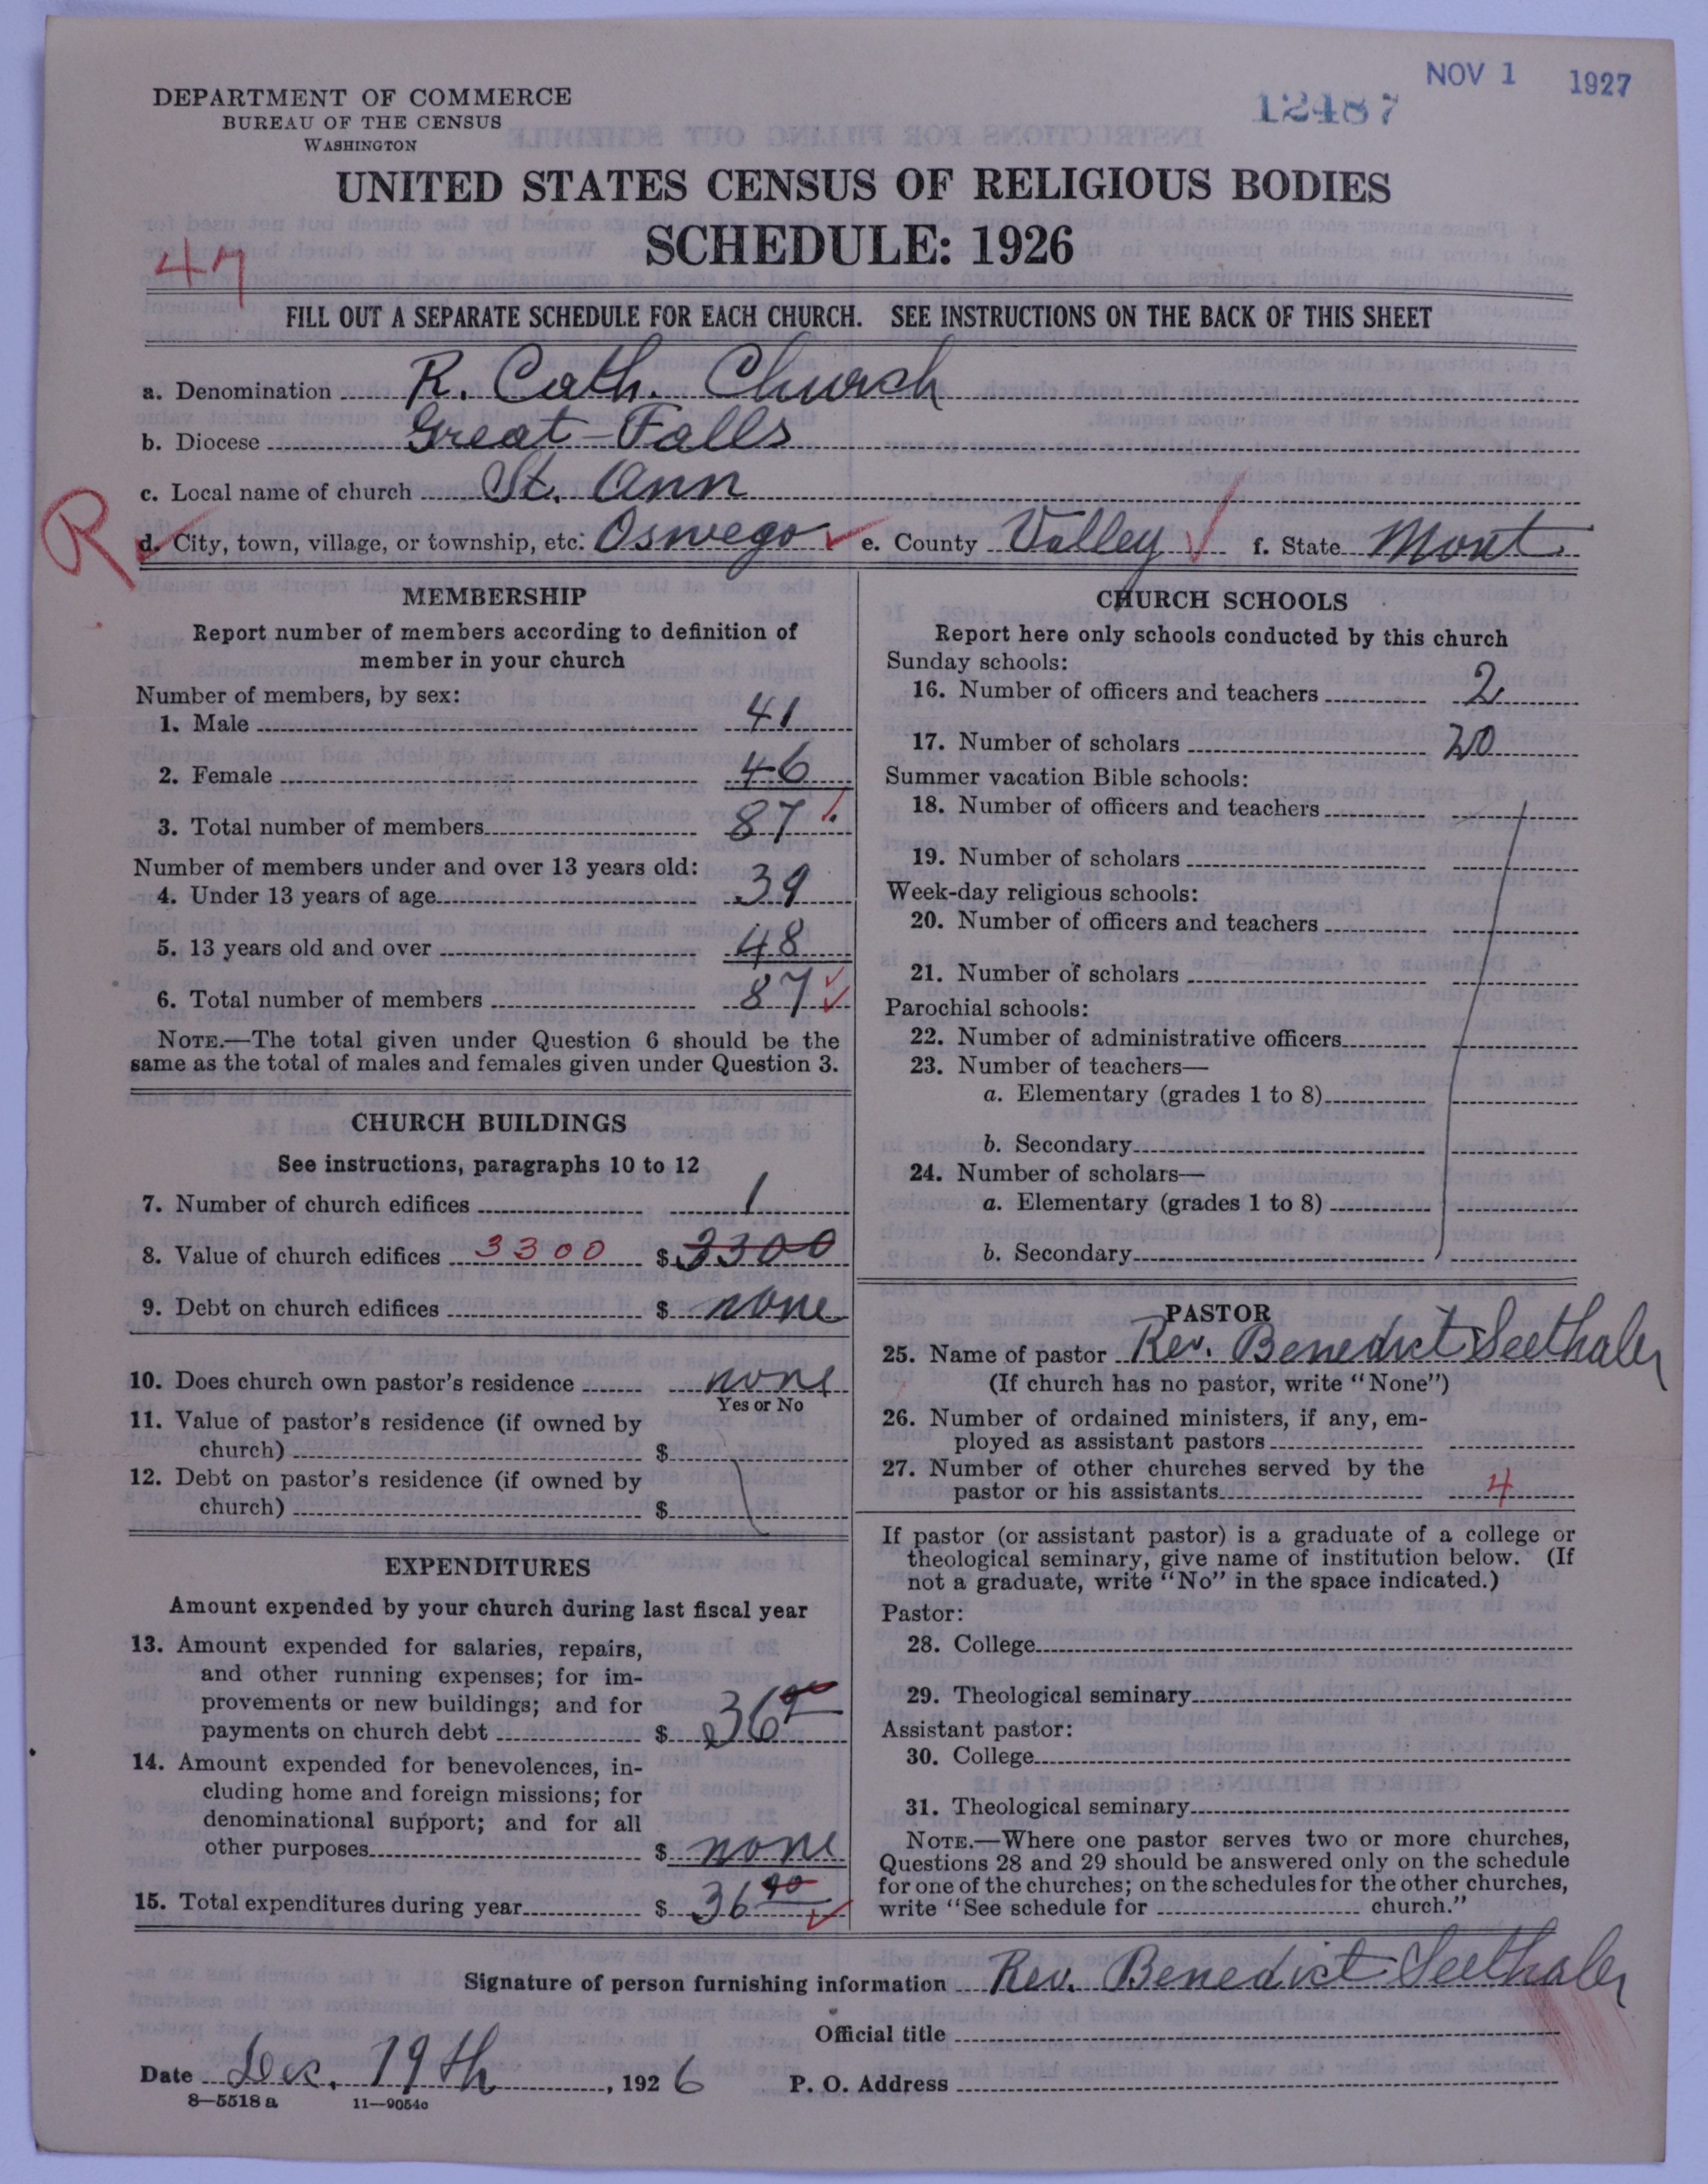 NOV 1 1927
12487
DEPARTMENT OF COMMERCE
BUREAU OF THE CENSUS
WASHINGTON
UNITED STATES CENSUS OF RELIGIOUS BODIES
SCHEDULE: 1926
47
FILL OUT A SEPARATE SCHEDULE FOR EACH CHURCH. SEE INSTRUCTIONS ON THE BACK OF THIS SHEET
a. Denomination R. Cath. Church
b. Diocese Great-Falls
c. Local name of church St. Ann
R
d. City, town, village, or township, etc. Oswego e. County Valley f. State Mont.
MEMBERSHIP
Report number of members according to definition of
member in your church
Number of members, by sex:
1. Male 41
2. Female 46
3. Total number of members 87
Number of members under and over 13 years old:
4. Under 13 years of age 39
5. 13 years old and over 48
6. Total number of members 87
NOTE.—The total given under Question 6 should be the
same as the total of males and females given under Question 3.
CHURCH BUILDINGS
See instructions, paragraphs 10 to 12
7. Number of church edifices 1
8. Value of church edifices 3300 $ 3300
9. Debt on church edifices $ none
10. Does church own pastor's residence none
Yes or No
11. Value of pastor's residence (if owned by
church) $
12. Debt on pastor's residence (if owned by
church) $
EXPENDITURES
Amount expended by your church during last fiscal year
13. Amount expended for salaries, repairs,
and other running expenses; for im-
provements or new buildings; and for
payments on church debt $ 36
14. Amount expended for benevolences, in-
cluding home and foreign missions; for
denominational support; and for all
other purposes $ none
15. Total expenditures during year $ 36
CHURCH SCHOOLS
Report here only schools conducted by this church
Sunday schools:
16. Number of officers and teachers 2
17. Number of scholars 20
Summer vacation Bible schools:
18. Number of officers and teachers
19. Number of scholars
Week-day religious schools:
20. Number of officers and teachers
21. Number of scholars
Parochial schools:
22. Number of administrative officers
23. Number of teachers—
a. Elementary (grades 1 to 8)
b. Secondary
24. Number of scholars—
a. Elementary (grades 1 to 8)
b. Secondary
PASTOR
25. Name of pastor Rev. Benedict Seethaler
(If church has no pastor, write "None")
26. Number of ordained ministers, if any, em-
ployed as assistant pastors
27. Number of other churches served by the
pastor or his assistants 4
If pastor (or assistant pastor) is a graduate of a college or
theological seminary, give name of institution below. (If
not a graduate, write "No" in the space indicated.)
Pastor:
28. College
29. Theological seminary
Assistant pastor:
30. College
31. Theological seminary
NOTE.—Where one pastor serves two or more churches,
Questions 28 and 29 should be answered only on the schedule
for one of the churches; on the schedules for the other churches,
write "See schedule for church."
Signature of person furnishing information Rev. Benedict Seethaler
Official title
Date Dec. 19th, 1926 P. O. Address
8—5518 a 11—9054c